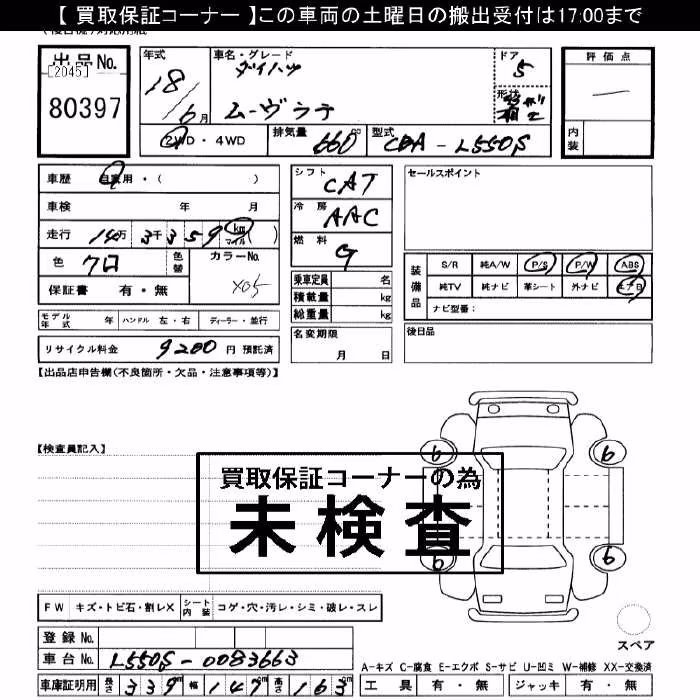 【 買取保証コーナー 】この車両の土曜日の搬出受付は17:00まで
出品No.
[2045]
80397
年式
18/6月
車名・グレード
ダイハツ
ムーヴラテ
ドア
5
形状
評価点
内装
2WD・4WD
排気量
660 cc
型式
CBA - L550S
車歴 自家用・( )
車検 年 月
走行 14万 3千 3 5 9 km マイル ( )
色 クロ
色替
カラーNo.
X05
保証書 有・無
シフト
CAT
冷房
AAC
燃料
G
乗車定員 名
積載量 kg
総重量 kg
セールスポイント
装備品
S/R 純A/W P/S P/W ABS
純TV 純ナビ 革シート 外ナビ エアB
ナビ型番:
モデル年式 年 ハンドル 左・右 ディーラー・並行
リサイクル料金 9200 円 預託済
名変期限
月 日
後日品
【出品店申告欄(不良箇所・欠品・注意事項等)】
【検査員記入】
買取保証コーナーの為
未検査
6
6
6
6
スペア
FW キズ・トビ石・割レX シート内装 コゲ・穴・汚レ・シミ・破レ・スレ
登録No.
車台No. L550S-0083663
車庫証明用 長さ 339 cm 幅 147 cm 高さ 163 cm
A-キズ C-腐食 E-エクボ S-サビ U-凹ミ W-補修 XX-交換済
工具 有・無 ジャッキ 有・無